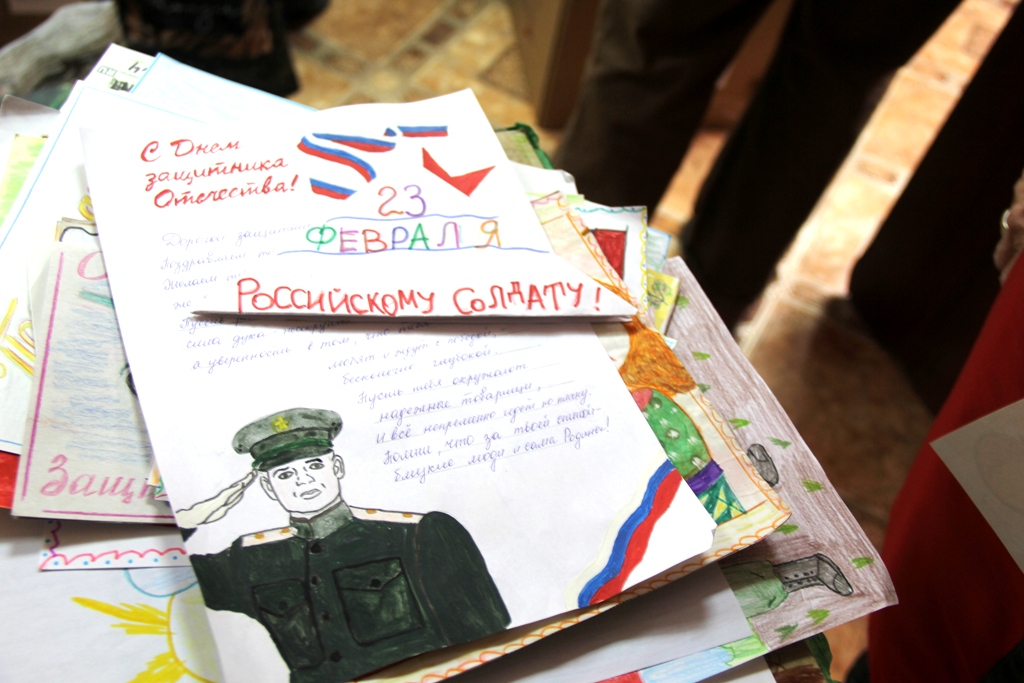 С Днем
защитника
Отечества!
23
ФЕВРАЛЯ
РОССИЙСКОМУ СОЛДАТУ!
Поздравляем
Желаем
сила духа
а уверенность в том, что
любят и ждут с победой,
бесконечно глубокой.
Пусть тебя окружают
надежные товарищи,
и всё непременно идёт по плану.
Помни, что за твоей спиной-
близкие люди и сама Родина!
Защ